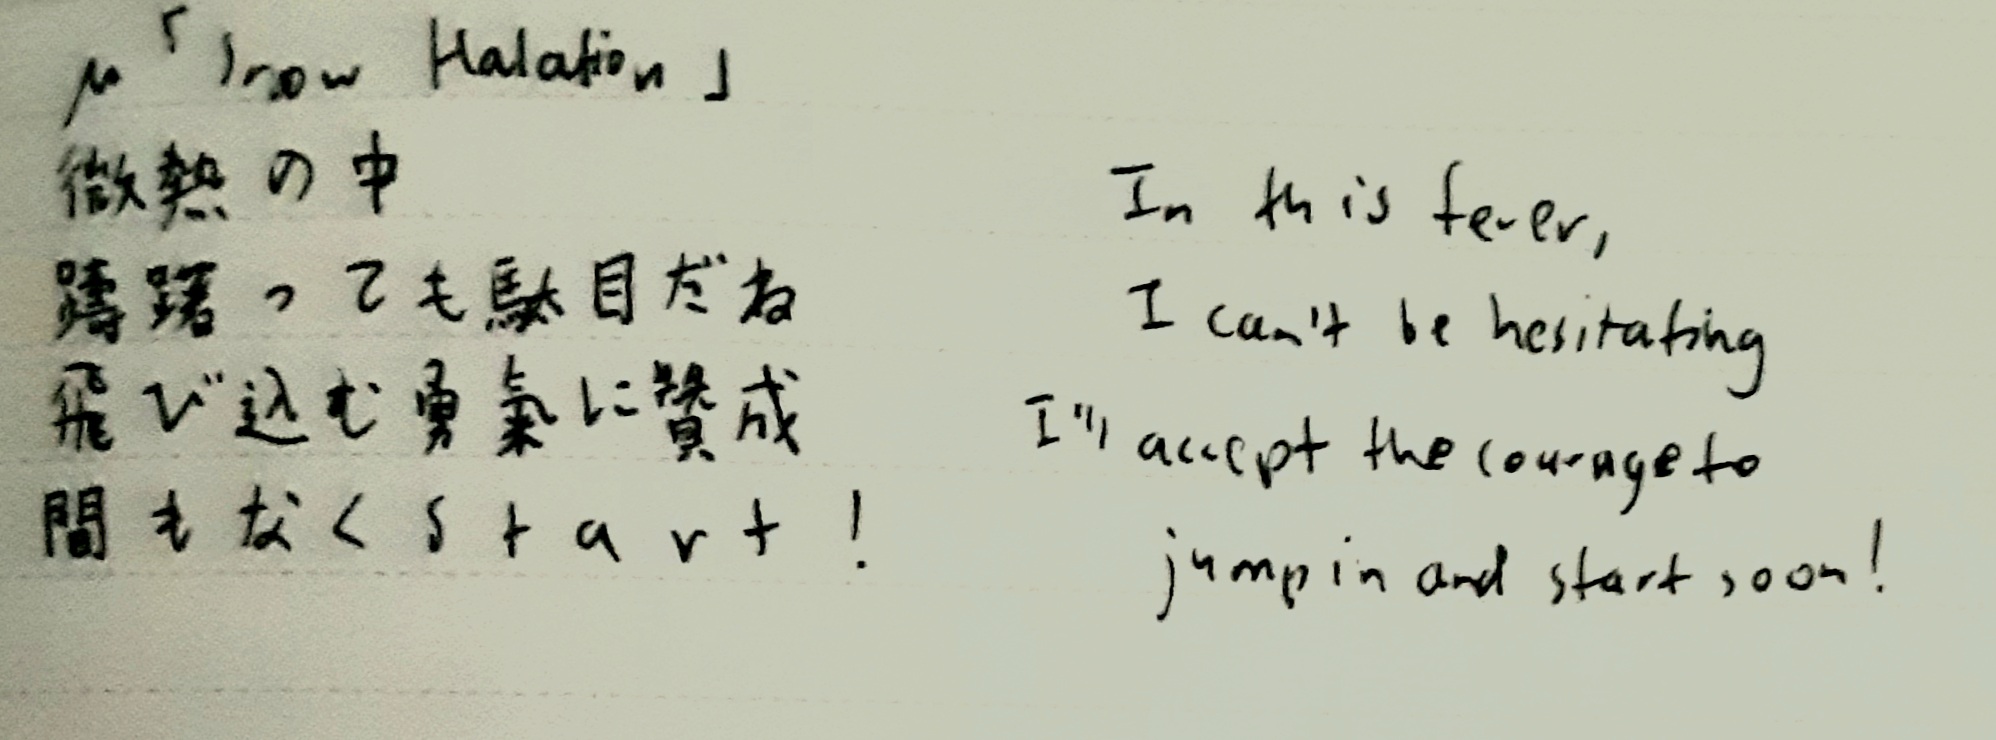 μ「Snow Halation」
微熱の中
躊躇っても駄目だね
飛び込む勇氣に賛成
間もなくStart!
In this fever,
I can't be hesitating
I'll accept the courage to
jump in and start soon!